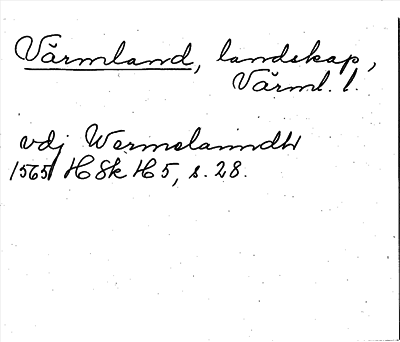 Värmland, landskap,
Värml. l.
vdj Wermelanndh
1565 HSk H5, s. 28.